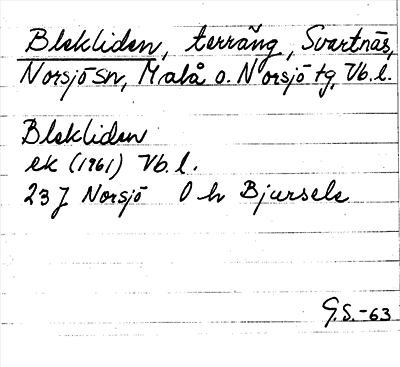 Blekliden, terräng, Svartnäs,
Norsjö sn, Malå o. Norsjö tg, Vb. l.
Blekliden
ek (1961) Vb. l.
23 J Norsjö O h Bjursele
G.S.-63